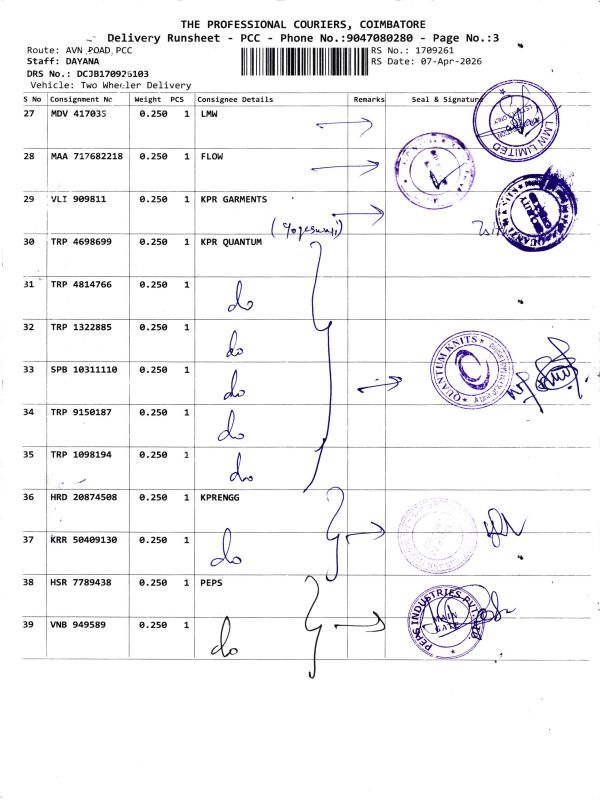 THE PROFESSIONAL COURIERS, COIMBATORE
Delivery Runsheet - PCC - Phone No.:9047080280 - Page No.:3
Route: AVN ROAD, PCC RS No.: 1709261
Staff: DAYANA RS Date: 07-Apr-2026
DRS No.: DCJB170926103
Vehicle: Two Wheeler Delivery
S No Consignment No Weight PCS Consignee Details Remarks Seal & Signature
27 MDV 417035 0.250 1 LMW
LMW LIMITED
28 MAA 717682218 0.250 1 FLOW
29 VLI 909811 0.250 1 KPR GARMENTS
(Yogeswari)
30 TRP 4698699 0.250 1 KPR QUANTUM
31 TRP 4814766 0.250 1 do
32 TRP 1322885 0.250 1 do
33 SPB 10311110 0.250 1 do
QUANTUM KNITS
34 TRP 9150187 0.250 1 do
35 TRP 1098194 0.250 1 do
36 HRD 20874508 0.250 1 KPRENGG
37 KRR 50409130 0.250 1 do
38 HSR 7789438 0.250 1 PEPS
39 VNB 949589 0.250 1 do
PEPS INDUSTRIES PVT. LTD
MAIN GATE